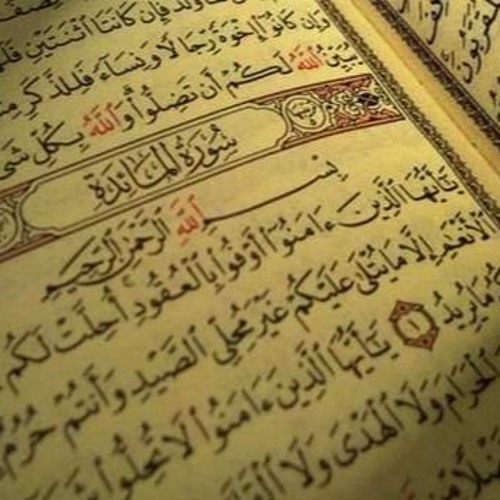 وَلَدٌ فَإِن كَانَتَا ٱثْنَتَيْنِ
وَإِن كَانُوٓا۟ إِخْوَةً رِّجَالًا وَنِسَآءً فَلِلذَّكَرِ
يُبَيِّنُ ٱللَّهُ لَكُمْ أَن تَضِلُّوا۟ وَٱللَّهُ بِكُلِّ
سُورَةُ الْمَائِدَةِ
بِسْمِ ٱللَّهِ ٱلرَّحْمَٰنِ ٱلرَّحِيمِ
يَٰٓأَيُّهَا ٱلَّذِينَ ءَامَنُوٓا۟ أَوْفُوا۟ بِٱلْعُقُودِ أُحِلَّتْ لَكُم
ٱلْأَنْعَٰمِ إِلَّا مَا يُتْلَىٰ عَلَيْكُمْ غَيْرَ مُحِلِّى ٱلصَّيْدِ وَأَنتُمْ حُرُمٌ
مَا يُرِيدُ ١ يَٰٓأَيُّهَا ٱلَّذِينَ ءَامَنُوا۟ لَا تُحِلُّوا۟
ٱلْحَرَامَ وَلَا ٱلْهَدْىَ وَلَا